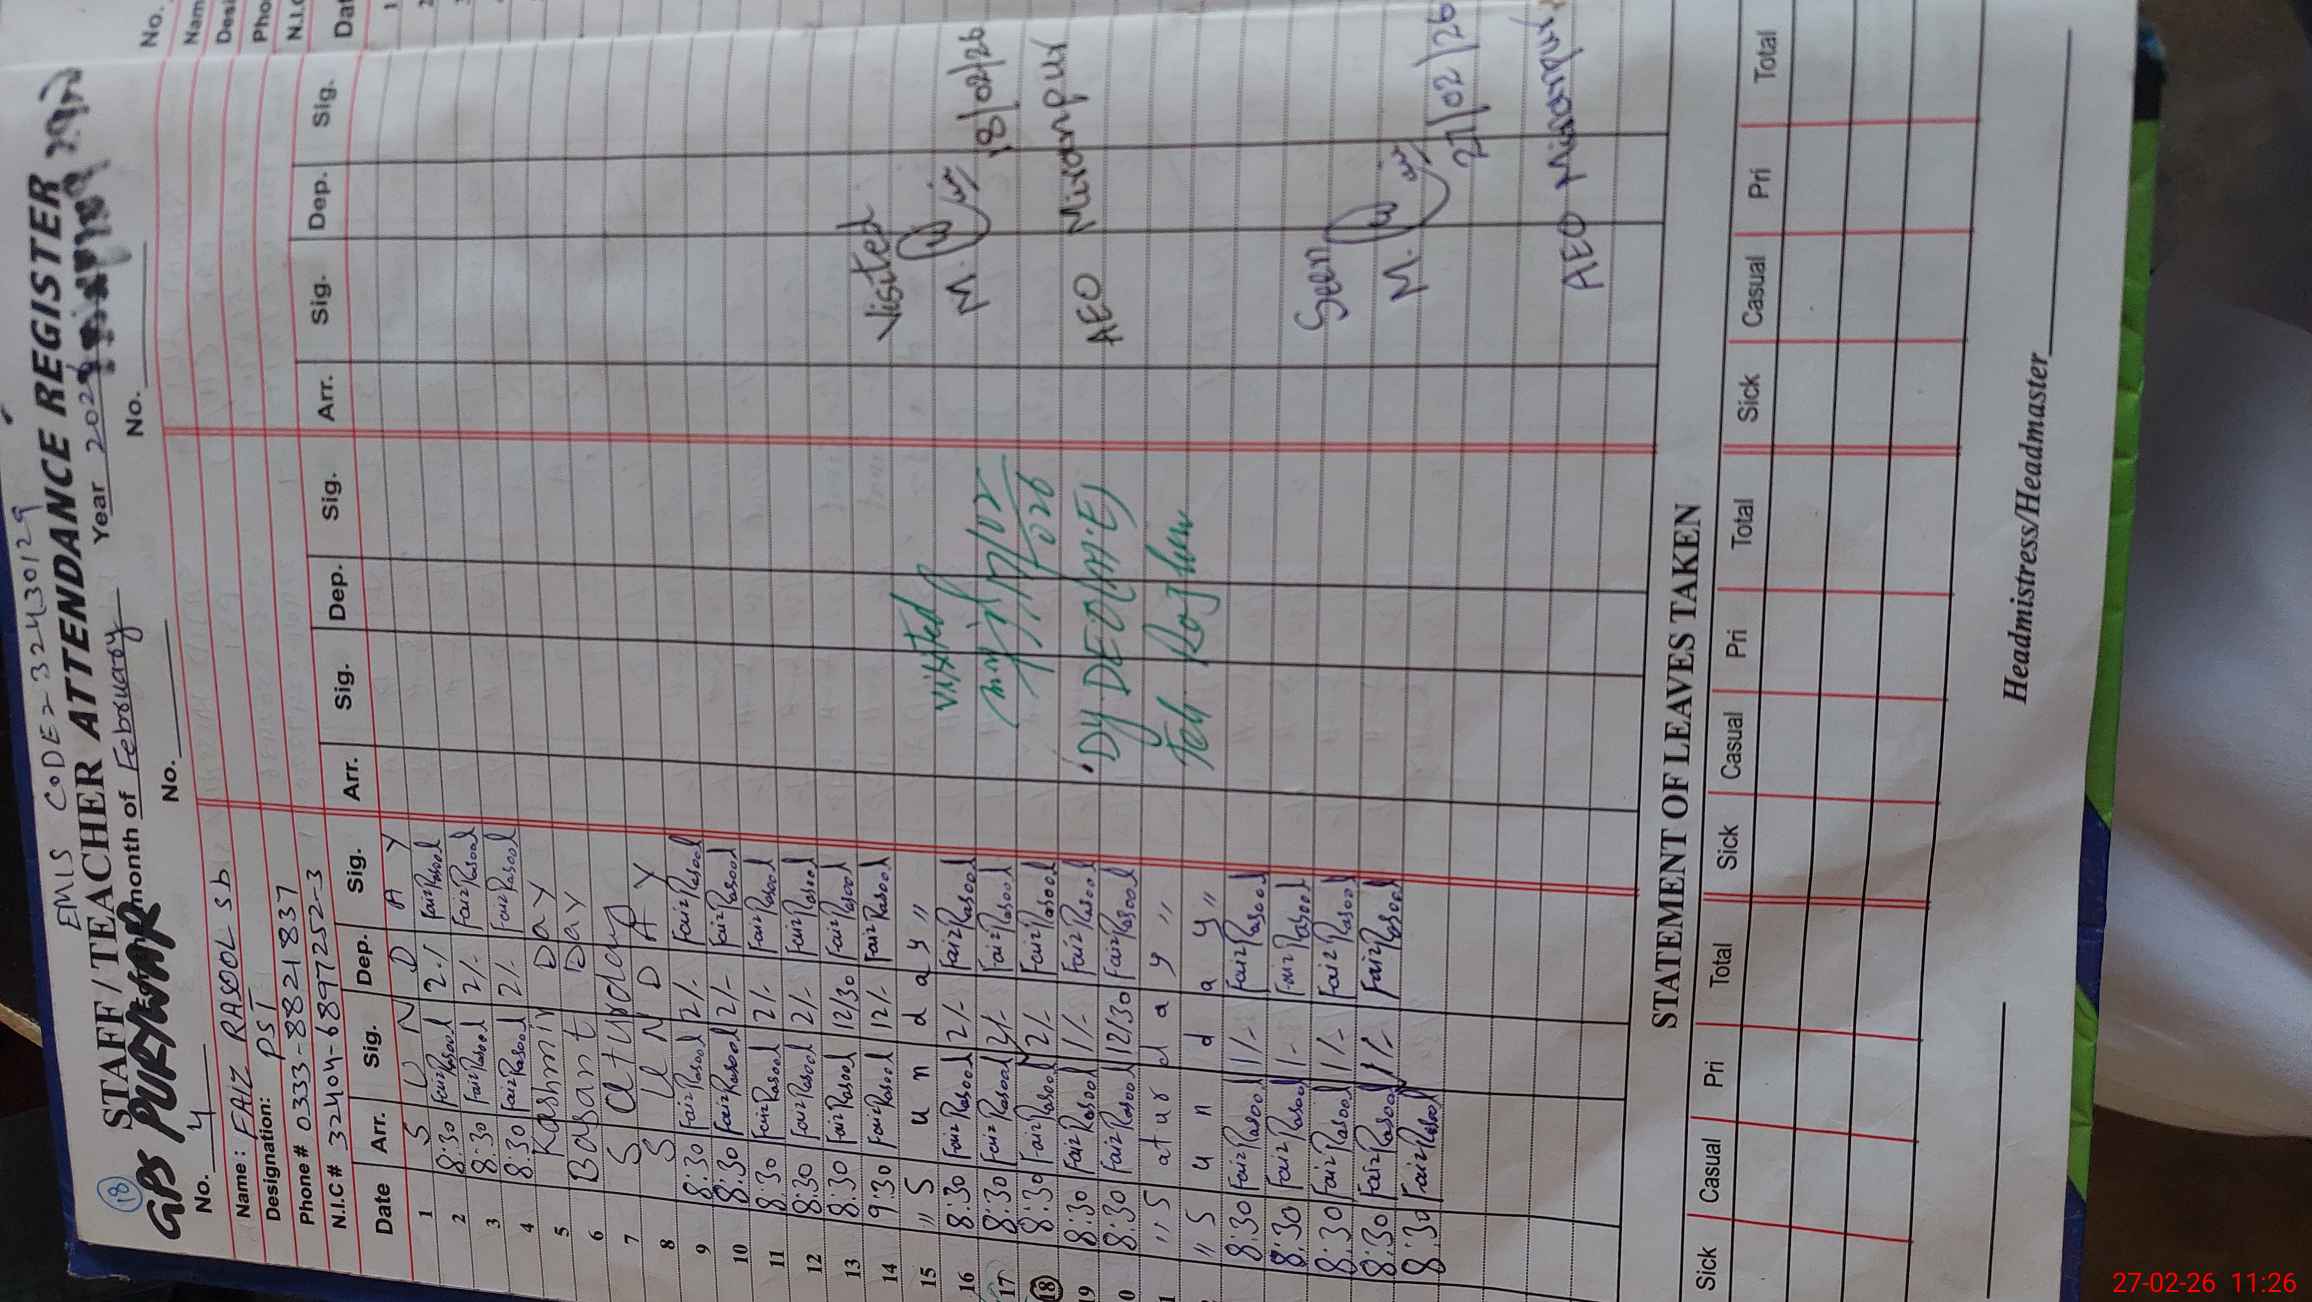 EMIS CODE = 32430129
STAFF / TEACHER ATTENDANCE REGISTER
18
GPS month of February Year
No. 4 No. No.
Name: FAIZ RASOOL Sb
Designation: PST
Phone # 0333-8821837
N.I.C # 32404-6897252-3
Date Arr. Sig. Dep. Sig. Arr. Sig. Dep. Sig. Arr. Sig. Dep. Sig.
1 S U N D A Y
2 8:30 Faiz Rasool 2/- Faiz Rasool
3 8:30 Faiz Rasool 2/- Faiz Rasool
4 8:30 Faiz Rasool 2/- Faiz Rasool
5 Kashmir Day
6 Basant Day
7 Saturday
8 S U N D A Y
9 8:30 Faiz Rasool 2/- Faiz Rasool
10 8:30 Faiz Rasool 2/- Faiz Rasool
11 8:30 Faiz Rasool 2/- Faiz Rasool
12 8:30 Faiz Rasool 2/- Faiz Rasool
13 8:30 Faiz Rasool 12/30 Faiz Rasool
14 9:30 Faiz Rasool 12/- Faiz Rasool
15 " S u n d a y "
16 8:30 Faiz Rasool 2/- Faiz Rasool
17 8:30 Faiz Rasool 2/- Faiz Rasool
18 8:30 Faiz Rasool 2/- Faiz Rasool
19 8:30 Faiz Rasool 1/- Faiz Rasool
0 8:30 Faiz Rasool 12/30 Faiz Rasool
1 " S a t u r d a y "
" S u n d a y "
8:30 Faiz Rasool 1/- Faiz Rasool
8:30 Faiz Rasool 1/- Faiz Rasool
8:30 Faiz Rasool 1/- Faiz Rasool
8:30 Faiz Rasool 1/- Faiz Rasool
8:30 Faiz Rasool
visited
17/02
026
Dy. DEO (M.E)
Teh.
Visited
M.
18/02/26
AEO Miranpur
Seen
M.
21/02/26
AEO Miranpur
STATEMENT OF LEAVES TAKEN
Sick Casual Pri Total Sick Casual Pri Total Sick Casual Pri Total
Headmistress/Headmaster
No.
Nam
Desi
Pho
N.I.C
Dat
1
2
27-02-26 11:26